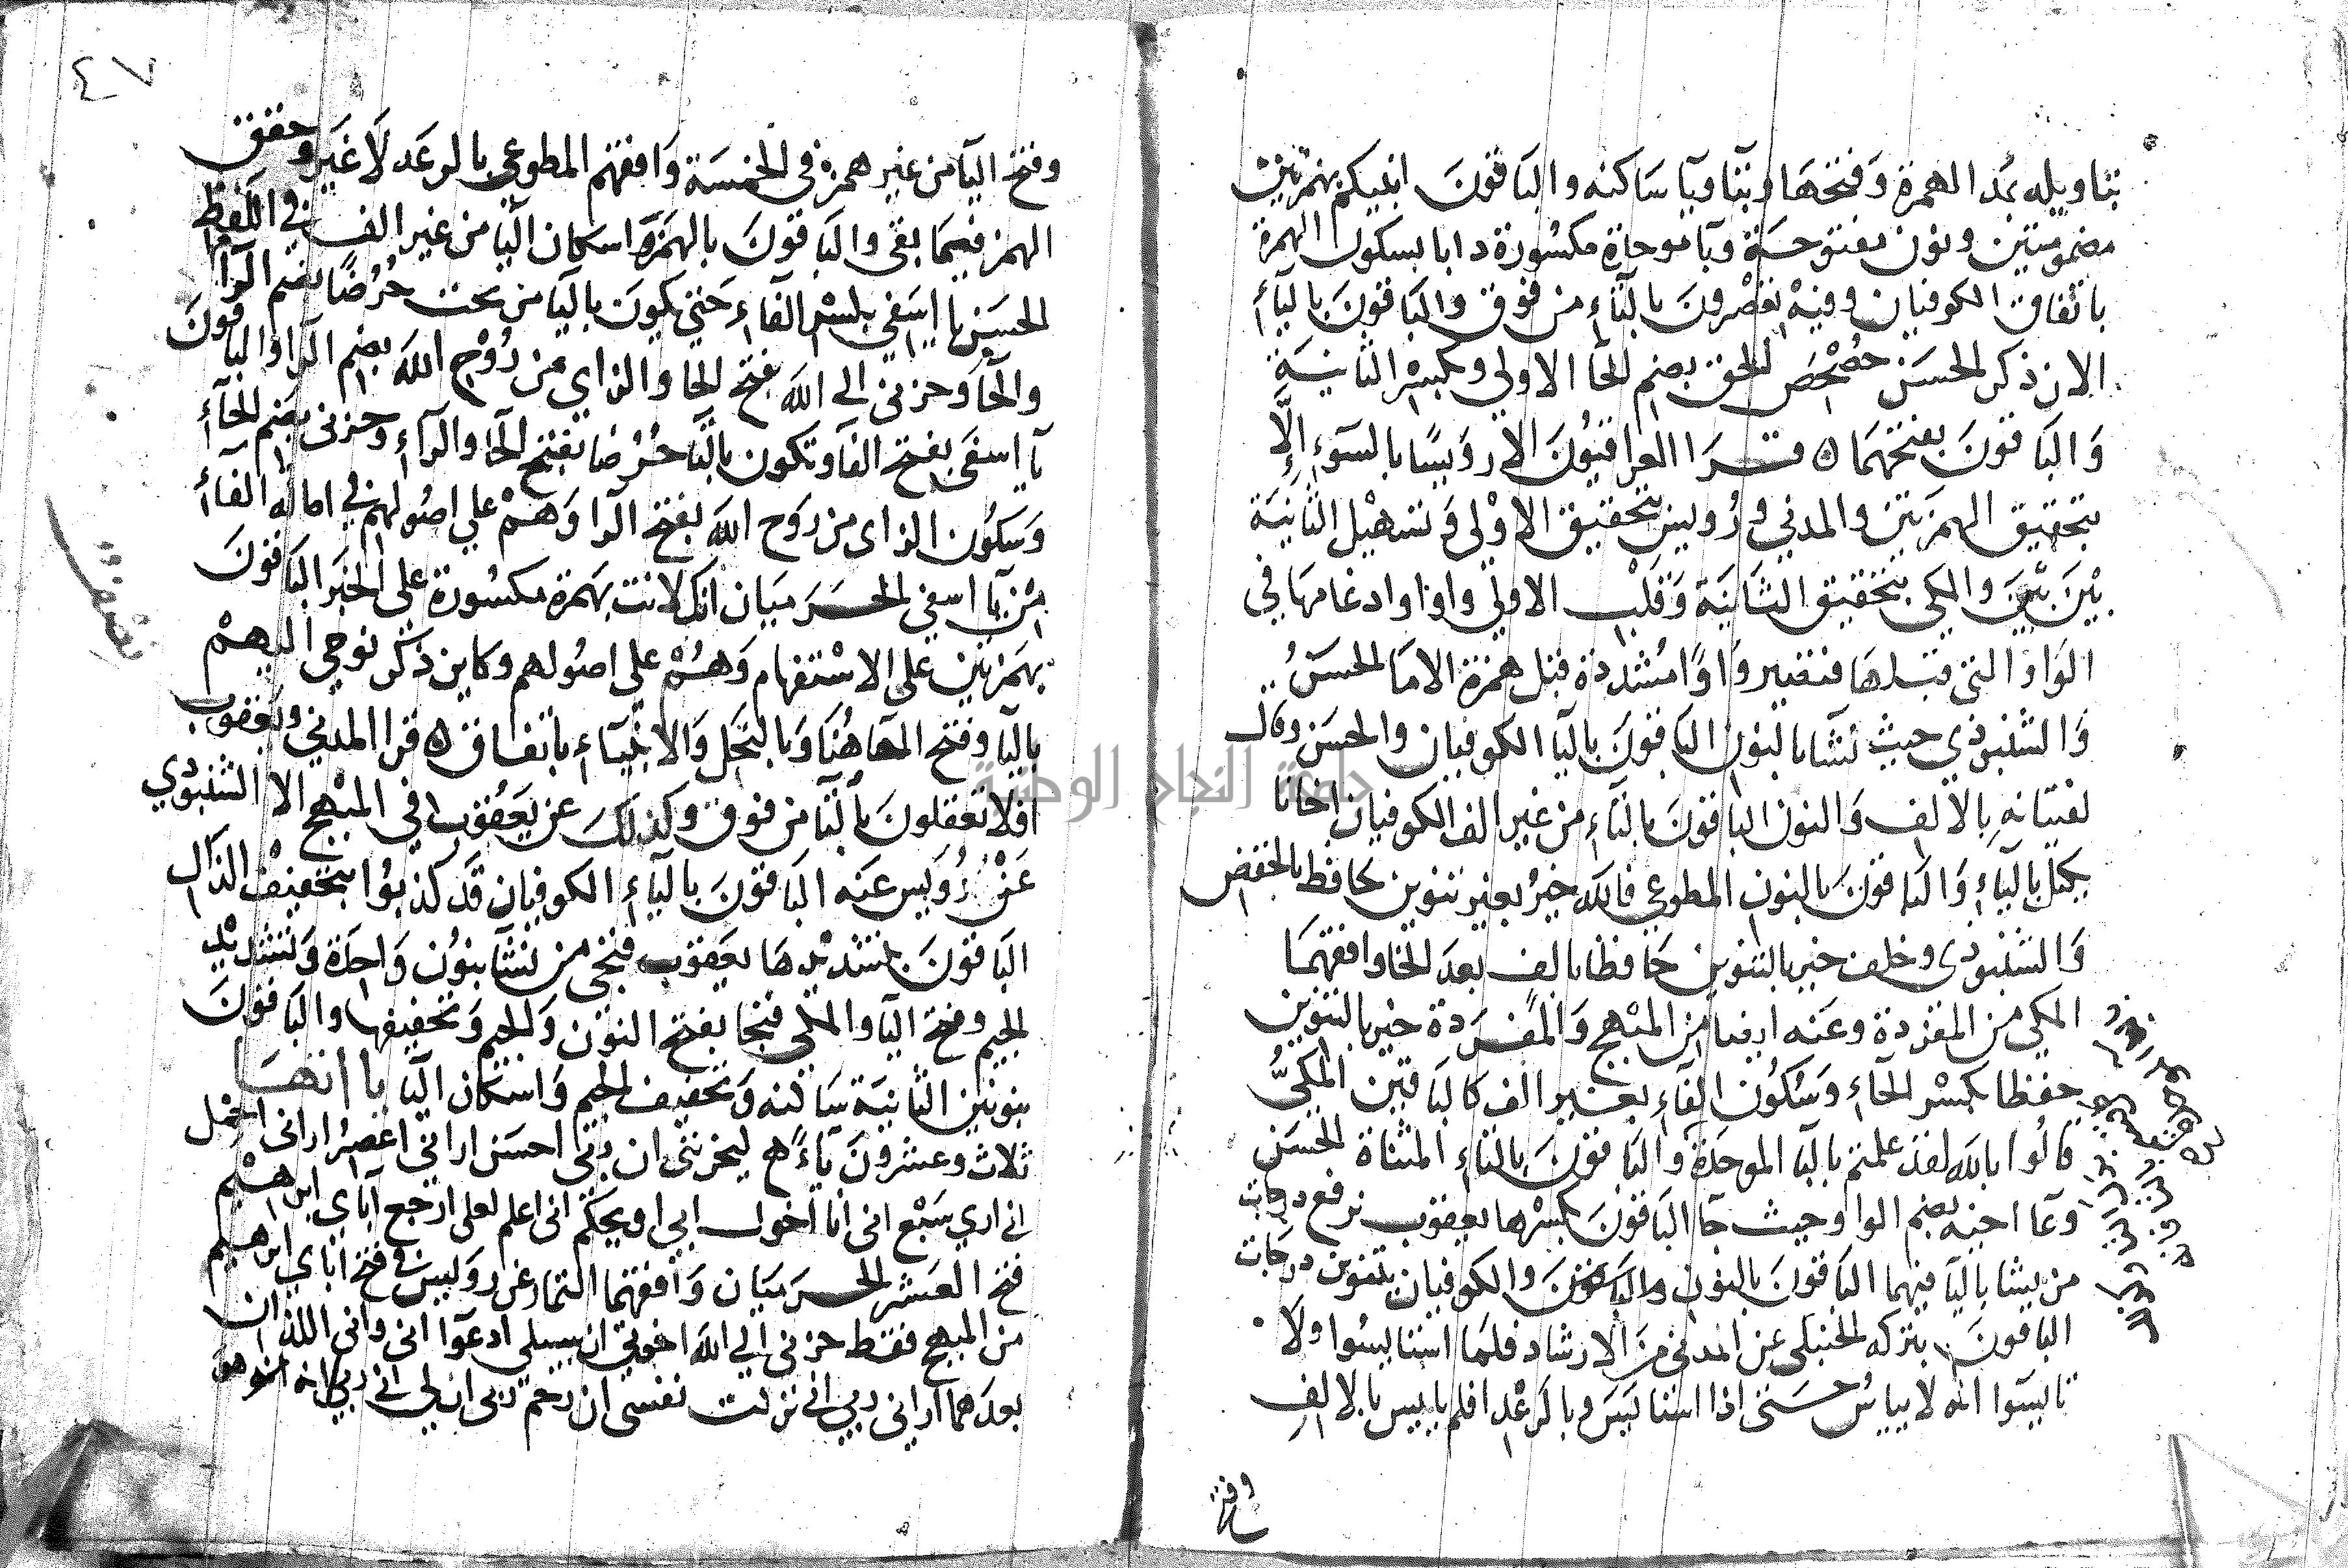 بتاويله بمد الهمزة وَفتحهَا وبتَآ وبآ سَاكنه والبَاقونَ انبيكم بهمزتين
مضمومتين ونون مفتوحَة وبآ موحدة مكسُورة دابا بسكون الهمزة
باتفاق الكوفيان وفيهْ تعْصرونَ بالتَّآءِ من فوق والبَاقونَ باليَآءِ
الان ذكر الحسَن حُصْحِصَ الحق بضم الحَآ الاولى وكسْر الثانيَة
وَالبَاقونَ بفتحهمَا ه قرَا العراقيُونَ الا رويسًا بالسَوءِ الَّا
بتحقيق الهمزَتين والمدني ورُويس بتحقيق الاوْلى وَتسْهيْل الثَّانيَة
بيْنَ بيْنَ والمكي بتحقيق الثانيَة وَقلْب الاولى واوا وادغامهَا في
الوَاو التى قبلهَا فتصير وَاوًا مُشَدَدَة قبل همزة الامَا الحسَنُ
وَالشنبوذي حيث نشَآ بالنون البَاقونَ باليَا الكوفيان والحسَن وقال
لفتيانه بالالف وَالنون البَاقونَ بالتَآءِ من غير الف الكوفيان اخانا
يكتل باليَآءِ وَالبَاقونَ بالنون المطوعي فالله خيرُ بغير تنوين حافظ بالخفض
وَالشنبوذى وخلف خير بالتنوين حَافظا بالف بعدَ الحَا وافقهمَا
المكى من المفردة وعَنه ايضا من المبْهج وَالمفرَدة خير بالتنوين
حفظا بكسْر الحَآءِ وَسُكُون الفَآءِ بغَير الف كالبَاقين المكيُّ
قالُوا بالله لقد علمتم بالبَآ الموحدَة وَالبَاقونَ بالتاءِ المثناة الحسَن
وعَآ اخيه بضم الواو حيث جَآ البَاقونَ بكسْرهَا يعقوب نرفع درجات
من يشا باليَآ فيهما البَاقونَ بالنون والكوفيان بتنوين درجَات
البَاقونَ بتركه الحنبلى عن المدنى من الارشاد فلمَا استايسُوا ولَا
تايسَوا انه لا ييأسُ حَتى اذا استايَسَ وبالرَعْد افلم يايس بالالف
وفتح
وفتح اليَآ من غير همزة فى الخمسَة وَافقهم المطوعي بالرعَد لَا غَير وحقق
الهمز فيمَا بقى والبَاقونَ بالهمَزة اسكان اليَا من غير الف في اللفظ
الحسَن يا اسَفِي بكسْر الفآءِ حَتى يكونَ باليَآ من تحت حُرُضًا بضم الرَا
والحَآ وحزنى الى الله بفتح الحا والزاي من رُوْح الله بضم الرا والبَاقونَ
يآ اسفَى بفتح الفَآ وتكون بالتَّا حَرَضًا بفتح الحَا والرَآءِ وحزنى بضم الحَآءِ
وَسكُون الزاى من رَوْح الله بفتح الرَا وَهمْ على اصُولهم فى امالة الفَآءِ
مِنْ يَآ اسفى الحرميَان انك لانت بهَمزة مكسُورة على الخبَر البَاقونَ
بهَمزتين على الاسْتفهام وَهُمْ على اصُولهم وكاين ذكر نوحى اليهمْ
باليَا وفتح الحَا هُنَا وَبالنحَل وَالانبيَآءِ باتفاق ه قرا المدني ويعقوب
افلا تعقلونَ بالتَّا من فوق وكذلكَ عن يَعقوب فى المبْهج الا الشنبوذي
عَنْ رُوَيس عَنه البَاقونَ باليَآءِ الكوفيان قَد كذبوُا بتخفيف الذال
البَاقونَ بتشديدهَا يعَقوب فنجى من نشَآ بنوُن وَاحدَة وَتشديْد
الجيم وفتح اليَآ والمكى فنجا بفتح النون وَالجيم وَتخفيفها والبَاقونَ
بنونين الثانيَة سَاكنه وَتخفيف الجيم وَاسكان اليَآ يا اتهَا
ثلاث وعشرونَ يَآءً ه ليحزنني ان ربى احسَن اراني اعصرُ ارانى احْمل
انى ارى سَبْع انى انا اخوك ابى او يحكم انى اعلم لعلى ارجع آباي ابرهيْم
فتح العَشر الحرميَان وَافقهمَا التمار عن رويس فى فتح ابَاي ابرهيم
من المبهج فقط حزنى الى الله اخوتى ان سبيلى ادعوَا انى وانى الله ان
بعدَهما ارانى ربى انى تركت نفسى ان رحم ربى ان لى انى ربى انه هو
جامعة النجاح الوطنية